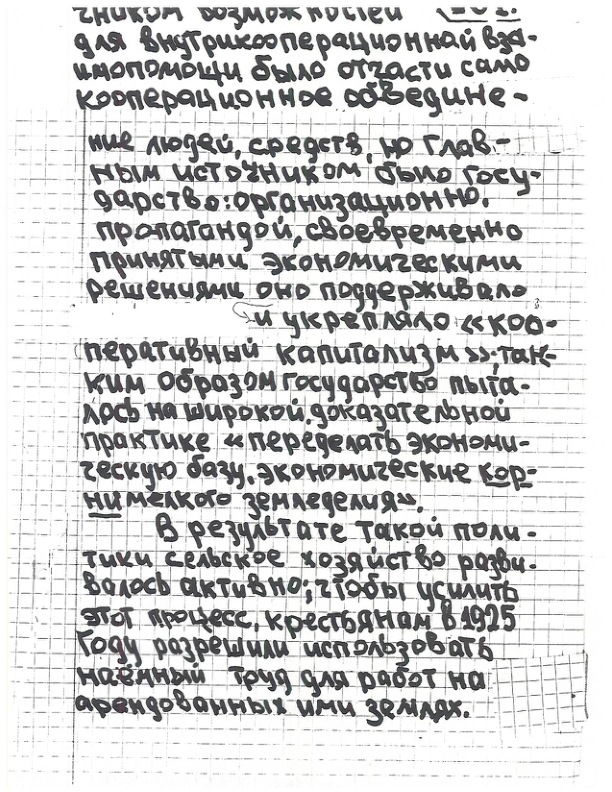 чником возможностей
для внутрикооперационной вза-
имопомощи было отчасти само
кооперационное объедине-
ние людей, средств, но глав-
ным источником было госу-
дарство: организационно,
пропагандой, своевременно
принятыми экономическими
решениями оно поддерживало
и укрепляло «коо-
перативный капитализм»; та-
ким образом государство пыта-
лось на широкой доказательной
практике «переделать экономи-
ческую базу, экономические кор-
ни мелкого земледелия».
В результате такой поли-
тики сельское хозяйство разви-
валось активно; чтобы усилить
этот процесс, крестьянам в 1925
году разрешили использовать
наёмный труд для работ на
арендованных ими землях.